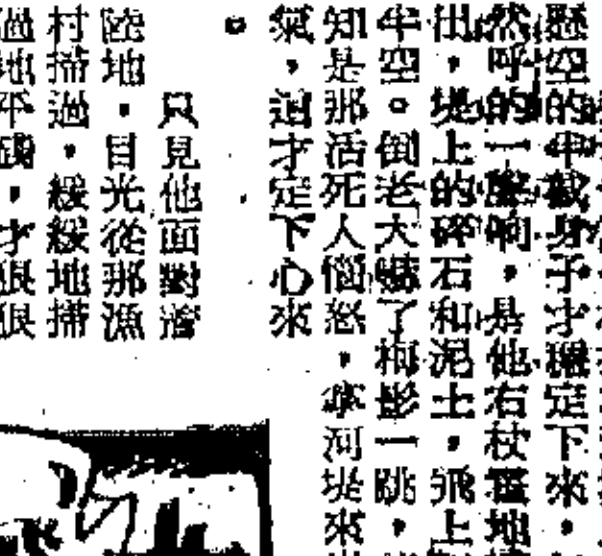 懸空的半截身子才穩定下來，
然呼的一聲响，是他右杖地
出，堤上的碎石和泥土，飛上
半空。倒老大嚇了梅影一跳，
知是那活死人惱怒，拿河堤來
氣，這才定下心來
。
只見他面對着
陸地，目光從那漁
村掃過，緩緩地掃
過地平綫，才狠狠